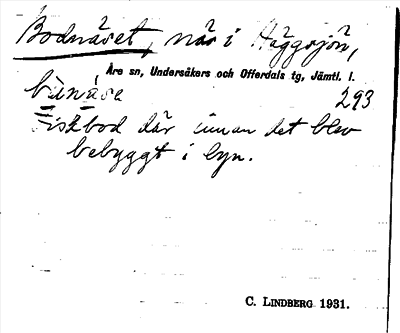 Bodnäset, näs i Häggsjön,
Åre sn, Undersåkers och Offerdals tg, Jämtl. l.
bùnása 293
Fiskbod där innan det blev
bebyggt i byn.
C. LINDBERG 1931.